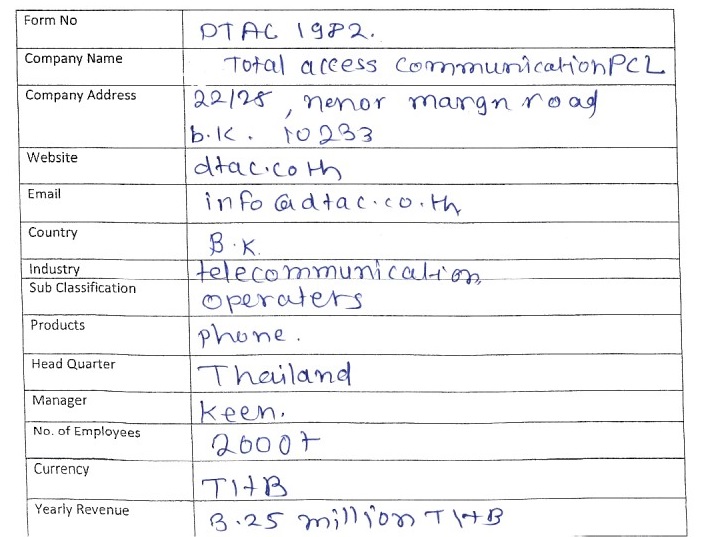 Form No DTAC 1982.
Company Name Total access communication PCL
Company Address 22/28, nenor margn road
b.k. 10233
Website dtac.co th
Email info @dtac.co.th
Country B.K.
Industry telecommunication
Sub Classification operaters
Products phone.
Head Quarter Thailand
Manager Keen.
No. of Employees 2000+
Currency THB
Yearly Revenue 3.25 million THB